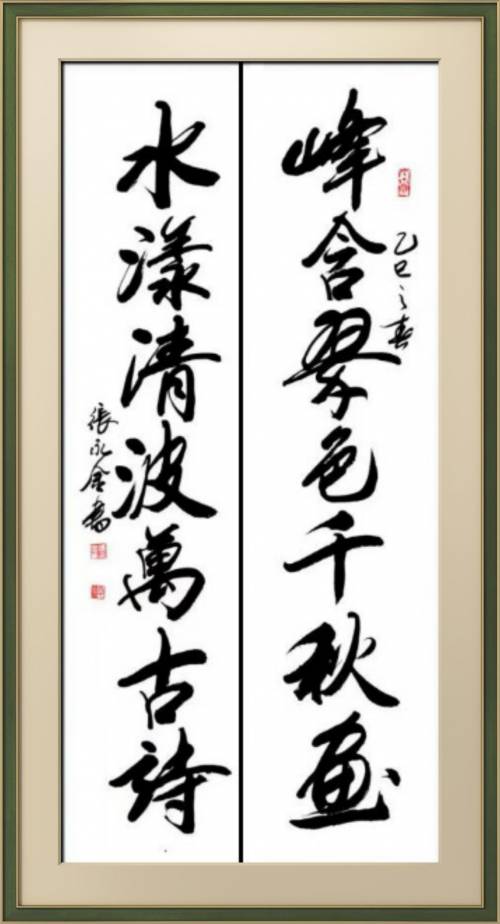 峰含翠色千秋画
乙巳之春
水漾清波萬古詩
張永會書